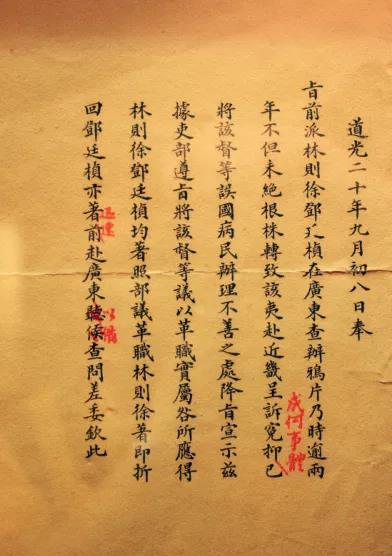 道光二十年九月初八日奉
旨前派林則徐鄧廷楨在廣東查辦鴉片乃時逾兩
年不但未絕根株轉致該夷赴近畿呈訴冤抑已
成何事體
將該督等誤國病民辦理不善之處降旨宣示茲
據吏部遵旨將該督等議以革職實屬咎所應得
林則徐鄧廷楨均著照部議革職林則徐著即折
迅速
以備
回鄧廷楨亦著前赴廣東聽候查問差委欽此